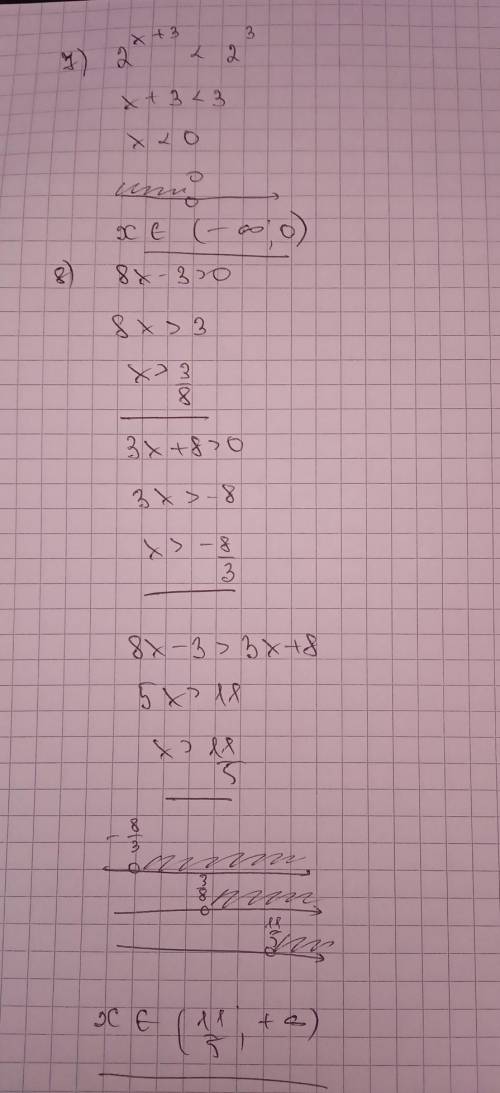 7) 2^{x+3} < 2^3
x + 3 < 3
x < 0
0
x ∈ (-∞; 0)
8) 8x - 3 > 0
8x > 3
x > 3/8
3x + 8 > 0
3x > -8
x > -8/3
8x - 3 > 3x + 8
5x > 11
x > 11/5
-8/3
3/8
11/5
x ∈ (11/5; +∞)